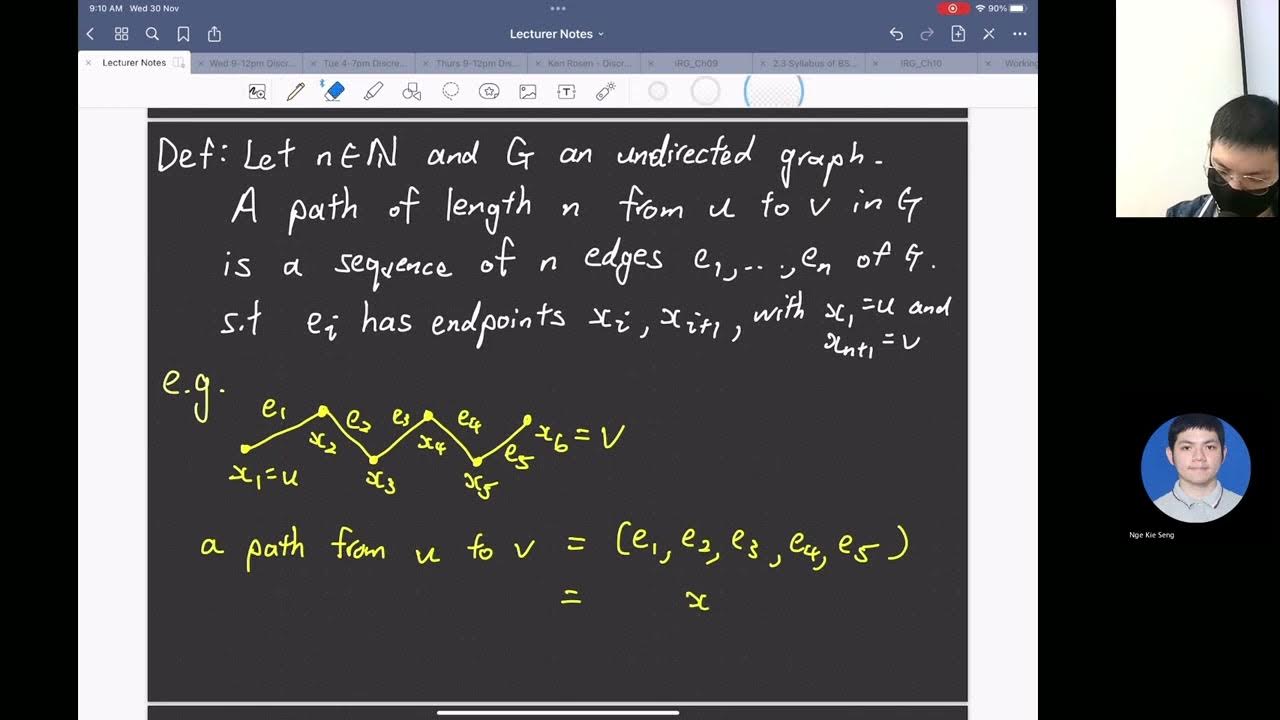 9:10 AM Wed 30 Nov
90%
Lecturer Notes
Lecturer Notes
Wed 9-12pm Discr...
Tue 4-7pm Discre...
Thurs 9-12pm Dis...
Ken Rosen - Discr...
IRG_Ch09
2.3 Syllabus of BS...
IRG_Ch10
Working
Def: Let n∈ℕ and G an undirected graph.
A path of length n from u to v in G
is a sequence of n edges e₁,...,eₙ of G.
s.t eᵢ has endpoints xᵢ, xᵢ₊₁, with x₁=u and
xₙ₊₁=v
e.g.
e₁ e₂ e₃ e₄
x₂ x₄ e₅ x₆=v
x₁=u x₃ x₅
a path from u to v = (e₁, e₂, e₃, e₄, e₅)
= x
Nge Kie Seng